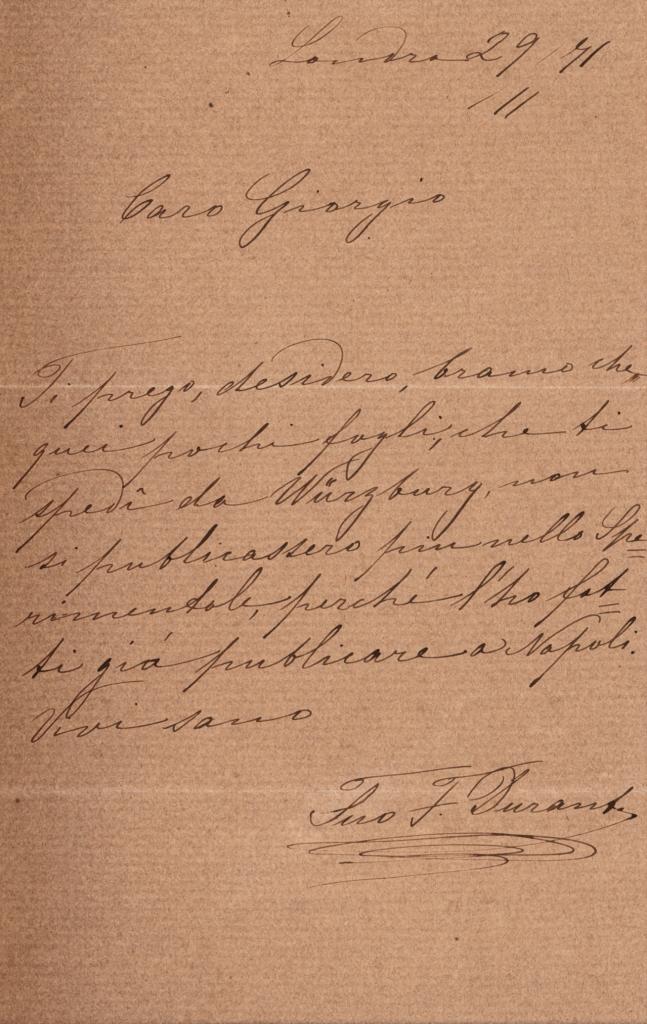 Londra 29/71
/11
Caro Giorgio
Ti prego, desidero, bramo che
quei pochi fogli, che ti
spedî da Würzburg, non
si publicassero piu nello Spe=
rimentale, perché l'ho fat=
ti giá publicare a Napoli.
Vivi sano
Tuo F. Durante